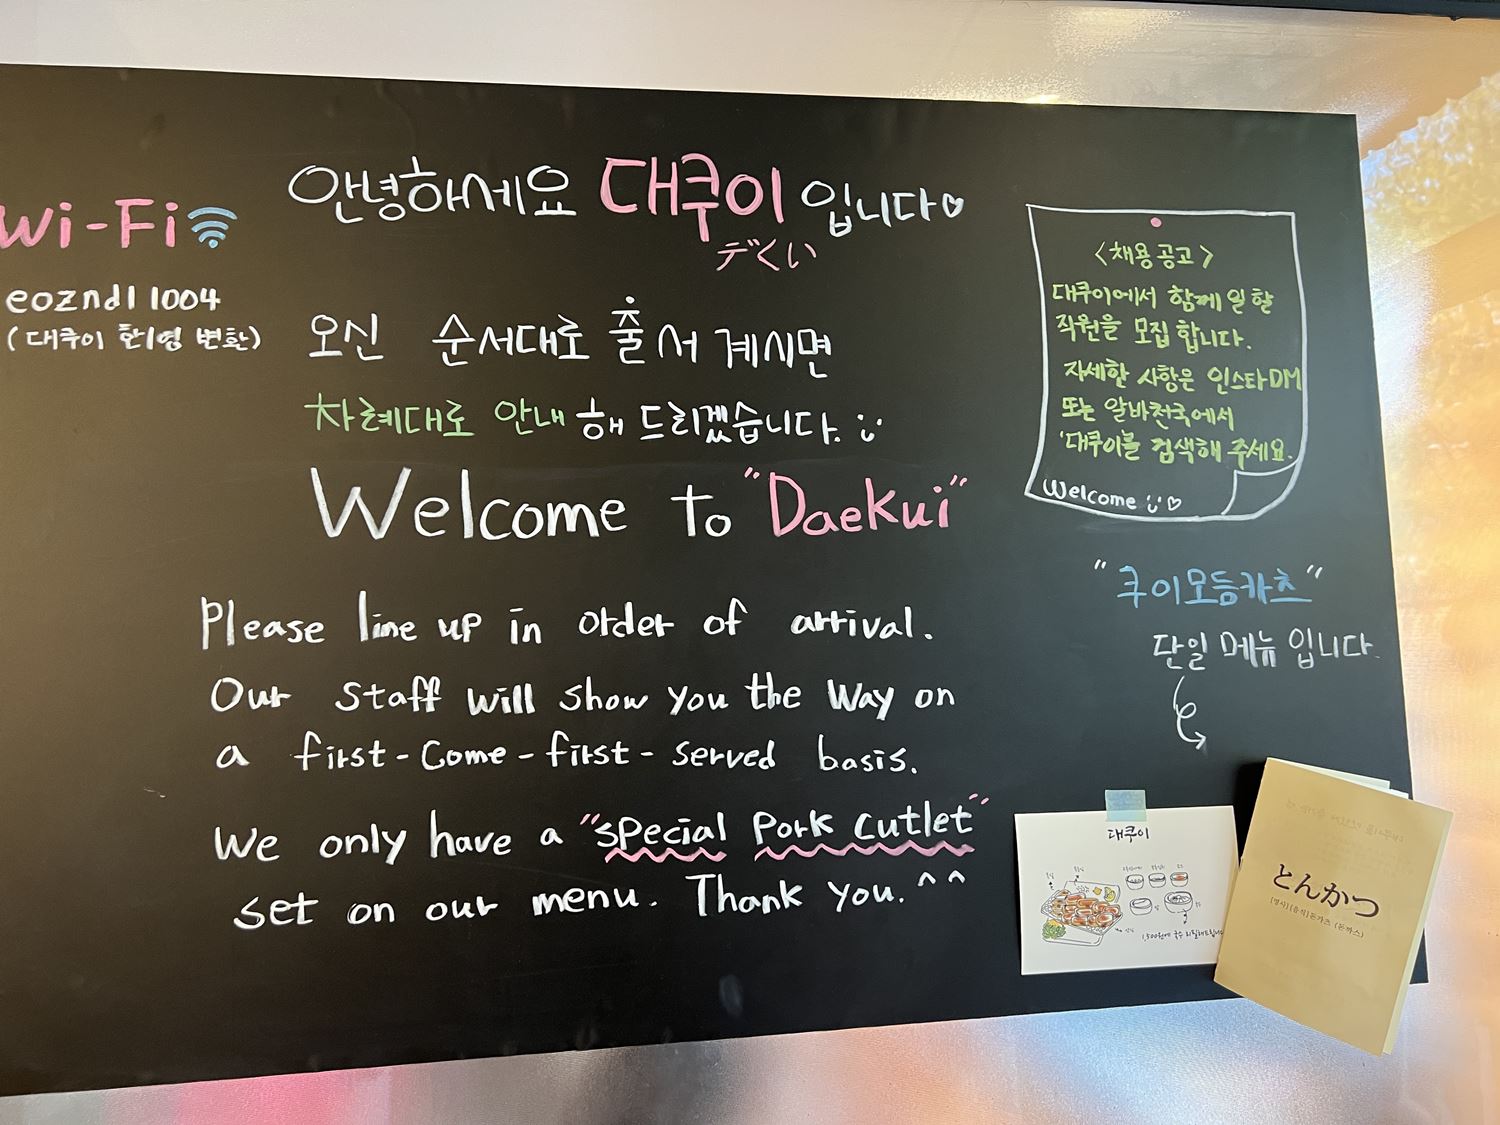 Wi-Fi
eozndl 1004
(대쿠이 한/영 변환)
안녕하세요 대쿠이 입니다
デくい
오신 순서대로 줄 서 계시면
차례대로 안내 해 드리겠습니다.
Welcome to "Daekui"
Please line up in order of arrival.
Our staff will show you the way on
a first-come-first-served basis.
We only have a "special pork cutlet"
set on our menu. Thank you.^^
<채용공고>
대쿠이에서 함께 일 할
직원을 모집 합니다.
자세할 사항은 인스타DM
또는 알바천국에서
'대쿠이'를 검색해 주세요.
Welcome
"쿠이모듬카츠"
단일 메뉴 입니다.
대쿠이
1,500원에 국수 리필해드립니다
とんかつ
[명사][음식]돈카츠 (돈까스)